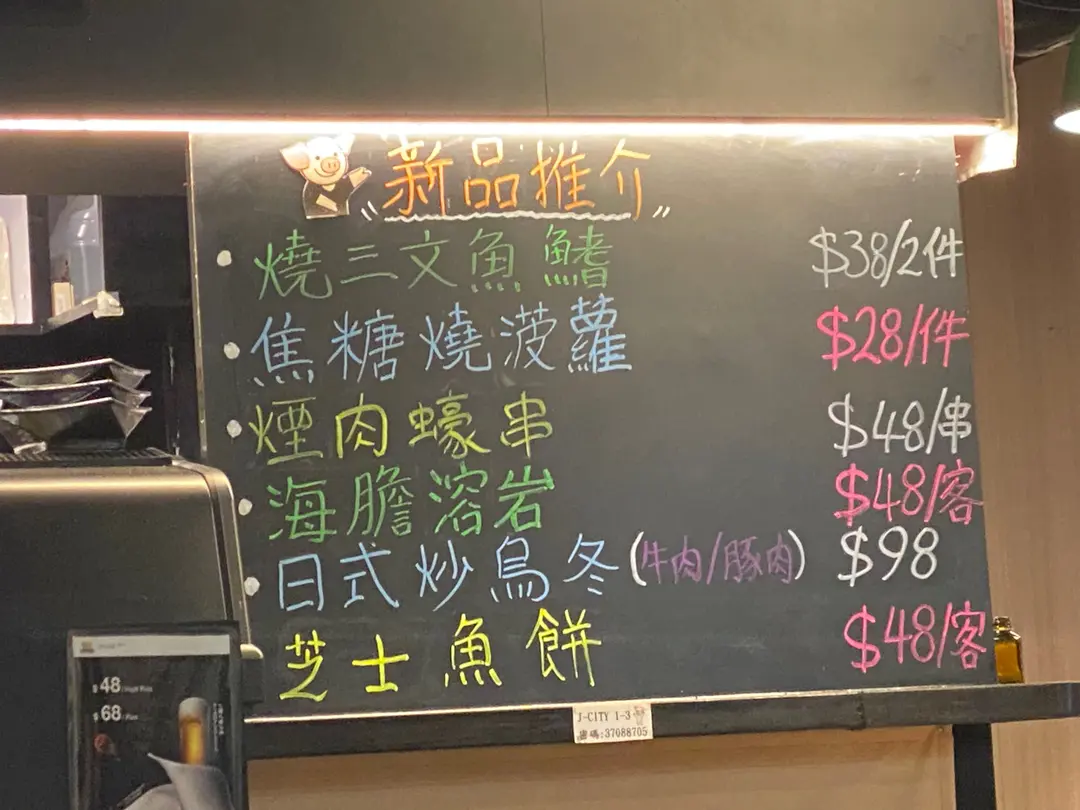 新品推介
燒三文魚鰭 $38/2件
焦糖燒菠蘿 $28/件
煙肉蠔串 $48/串
海膽溶岩 $48/客
日式炒烏冬(牛肉/豚肉) $98
芝士魚餅 $48/客
J-CITY 1-3
密碼:37088705
$48
$68